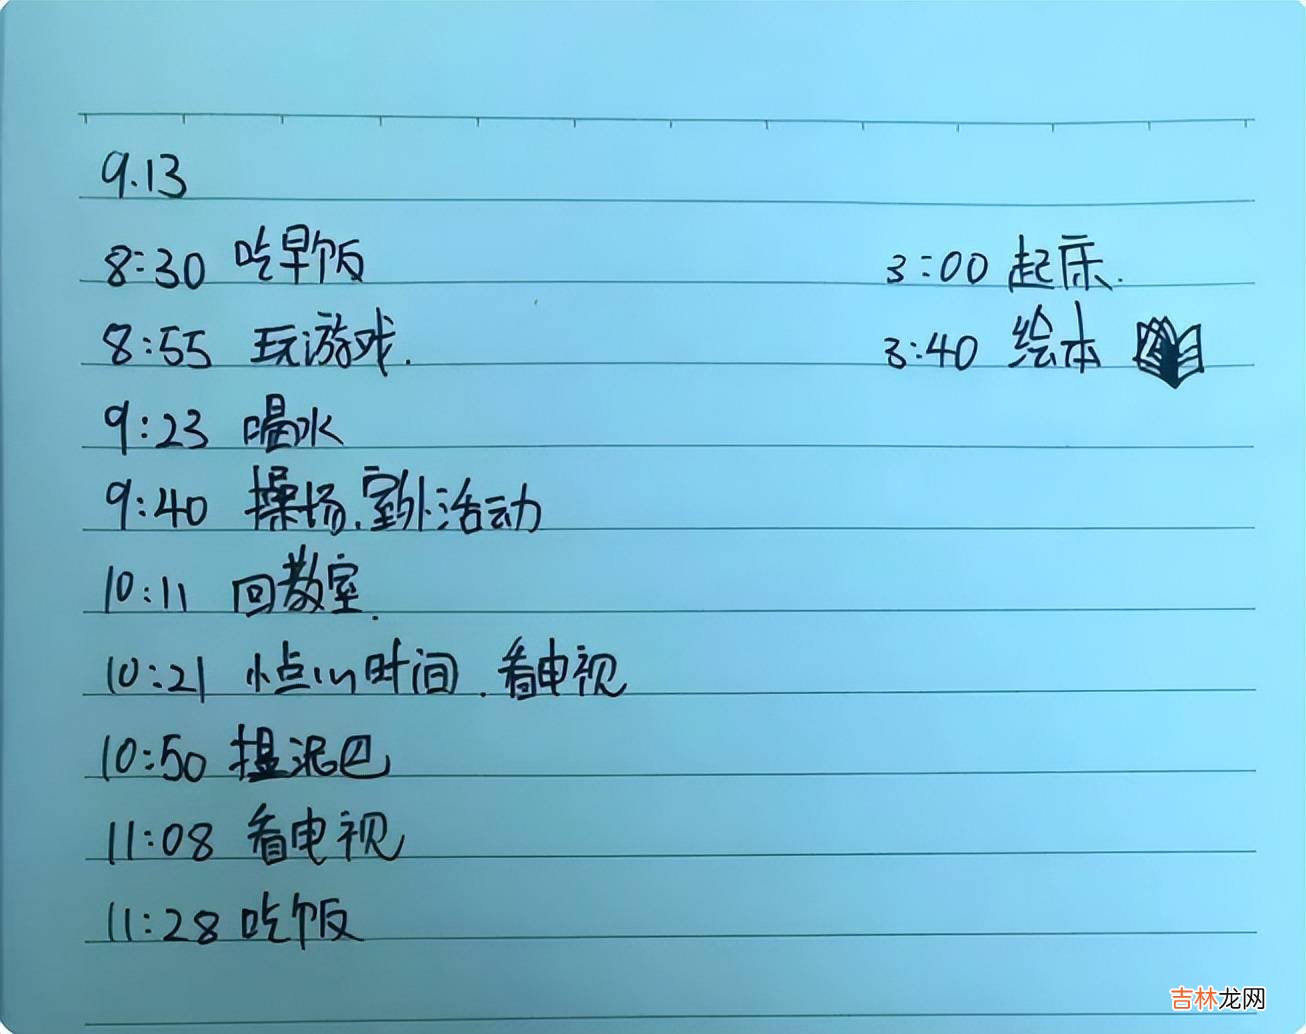 9.13
8:30 吃早饭
8:55 玩游戏.
9:23 喝水
9:40 操场、室外活动
10:11 回教室.
10:21 小点心时间、看电视
10:50 捏泥巴
11:08 看电视
11:28 吃饭
3:00 起床.
3:40 绘本
吉林龙网